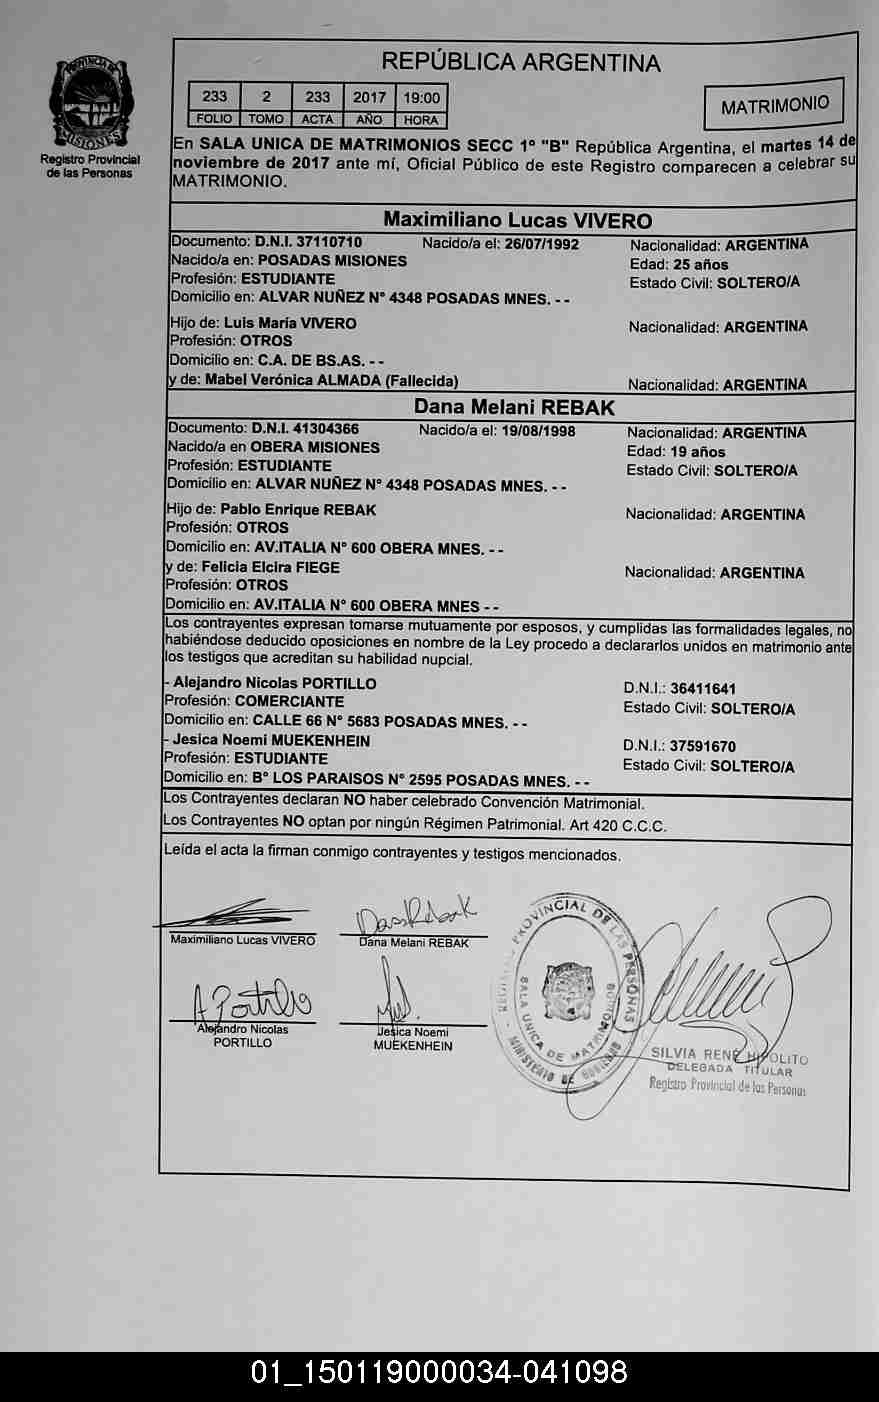 PROVINCIA DE
MISIONES
Registro Provincial
de las Personas
REPÚBLICA ARGENTINA
233 2 233 2017 19:00
FOLIO TOMO ACTA AÑO HORA
MATRIMONIO
En SALA UNICA DE MATRIMONIOS SECC 1º "B" República Argentina, el martes 14 de
noviembre de 2017 ante mí, Oficial Público de este Registro comparecen a celebrar su
MATRIMONIO.
Maximiliano Lucas VIVERO
Documento: D.N.I. 37110710 Nacido/a el: 26/07/1992 Nacionalidad: ARGENTINA
Nacido/a en: POSADAS MISIONES Edad: 25 años
Profesión: ESTUDIANTE Estado Civil: SOLTERO/A
Domicilio en: ALVAR NUÑEZ Nº 4348 POSADAS MNES. - -
Hijo de: Luis María VIVERO Nacionalidad: ARGENTINA
Profesión: OTROS
Domicilio en: C.A. DE BS.AS. - -
y de: Mabel Verónica ALMADA (Fallecida) Nacionalidad: ARGENTINA
Dana Melani REBAK
Documento: D.N.I. 41304366 Nacido/a el: 19/08/1998 Nacionalidad: ARGENTINA
Nacido/a en OBERA MISIONES Edad: 19 años
Profesión: ESTUDIANTE Estado Civil: SOLTERO/A
Domicilio en: ALVAR NUÑEZ Nº 4348 POSADAS MNES. - -
Hijo de: Pablo Enrique REBAK Nacionalidad: ARGENTINA
Profesión: OTROS
Domicilio en: AV.ITALIA Nº 600 OBERA MNES. - -
y de: Felicia Elcira FIEGE Nacionalidad: ARGENTINA
Profesión: OTROS
Domicilio en: AV.ITALIA Nº 600 OBERA MNES - -
Los contrayentes expresan tomarse mutuamente por esposos, y cumplidas las formalidades legales, no
habiéndose deducido oposiciones en nombre de la Ley procedo a declararlos unidos en matrimonio ante
los testigos que acreditan su habilidad nupcial.
- Alejandro Nicolas PORTILLO D.N.I.: 36411641
Profesión: COMERCIANTE Estado Civil: SOLTERO/A
Domicilio en: CALLE 66 Nº 5683 POSADAS MNES. - -
- Jesica Noemi MUEKENHEIN D.N.I.: 37591670
Profesión: ESTUDIANTE Estado Civil: SOLTERO/A
Domicilio en: Bº LOS PARAISOS Nº 2595 POSADAS MNES. - -
Los Contrayentes declaran NO haber celebrado Convención Matrimonial.
Los Contrayentes NO optan por ningún Régimen Patrimonial. Art 420 C.C.C.
Leída el acta la firman conmigo contrayentes y testigos mencionados.
Dana Rebak
Maximiliano Lucas VIVERO Dana Melani REBAK
A Portillo
Alejandro Nicolas
PORTILLO
Jesica Noemi
MUEKENHEIN
REGISTRO PROVINCIAL DE LAS PERSONAS
SALA UNICA DE MATRIMONIOS
MINISTERIO DE GOBIERNO
SILVIA RENE HIPOLITO
DELEGADA TITULAR
Registro Provincial de las Personas
01_150119000034-041098